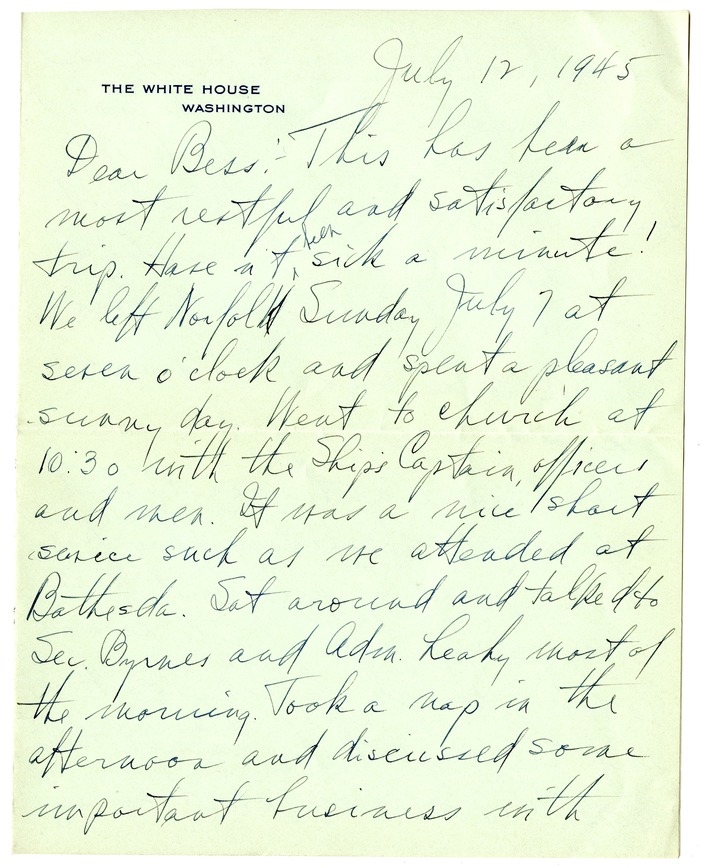 July 12, 1945
THE WHITE HOUSE
WASHINGTON
Dear Bess:- This has been a
most restful and satisfactory
trip. Have n't been sick a minute!
We left Norfolk Sunday July 7 at
seven o'clock and spent a pleasant
sunny day. Went to church at
10:30 with the Ship's Captain, officers
and men. It was a nice short
service such as we attended at
Bethesda. Sat around and talked to
Sec. Byrnes and Adm. Leahy most of
the morning. Took a nap in the
afternoon and discussed some
important business with